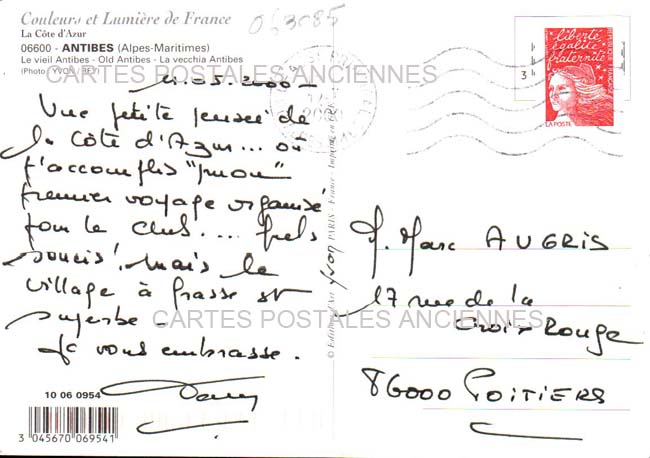 Couleurs et Lumière de France
La Côte d'Azur
06600 - ANTIBES (Alpes-Maritimes)
Le vieil Antibes - Old Antibes - La vecchia Antibes
(Photo : YVON / REY)
063085
CARTES POSTALES ANCIENNES
11.05.2000 -
Une petite pensée de
la Côte d'Azur... où
j'accomplis "mon"
premier voyage organisé
pour le club.... quels
soucis! mais le
village à Grasse est
superbe -
Je vous embrasse.
10 06 0954
3 045670 069541
yvon PARIS - France -
liberté
égalité
fraternité
LA POSTE
M. Marc AUGRIS
17 rue de la
Croix Rouge
86000 POITIERS
CARTES POSTALES ANCIENNES